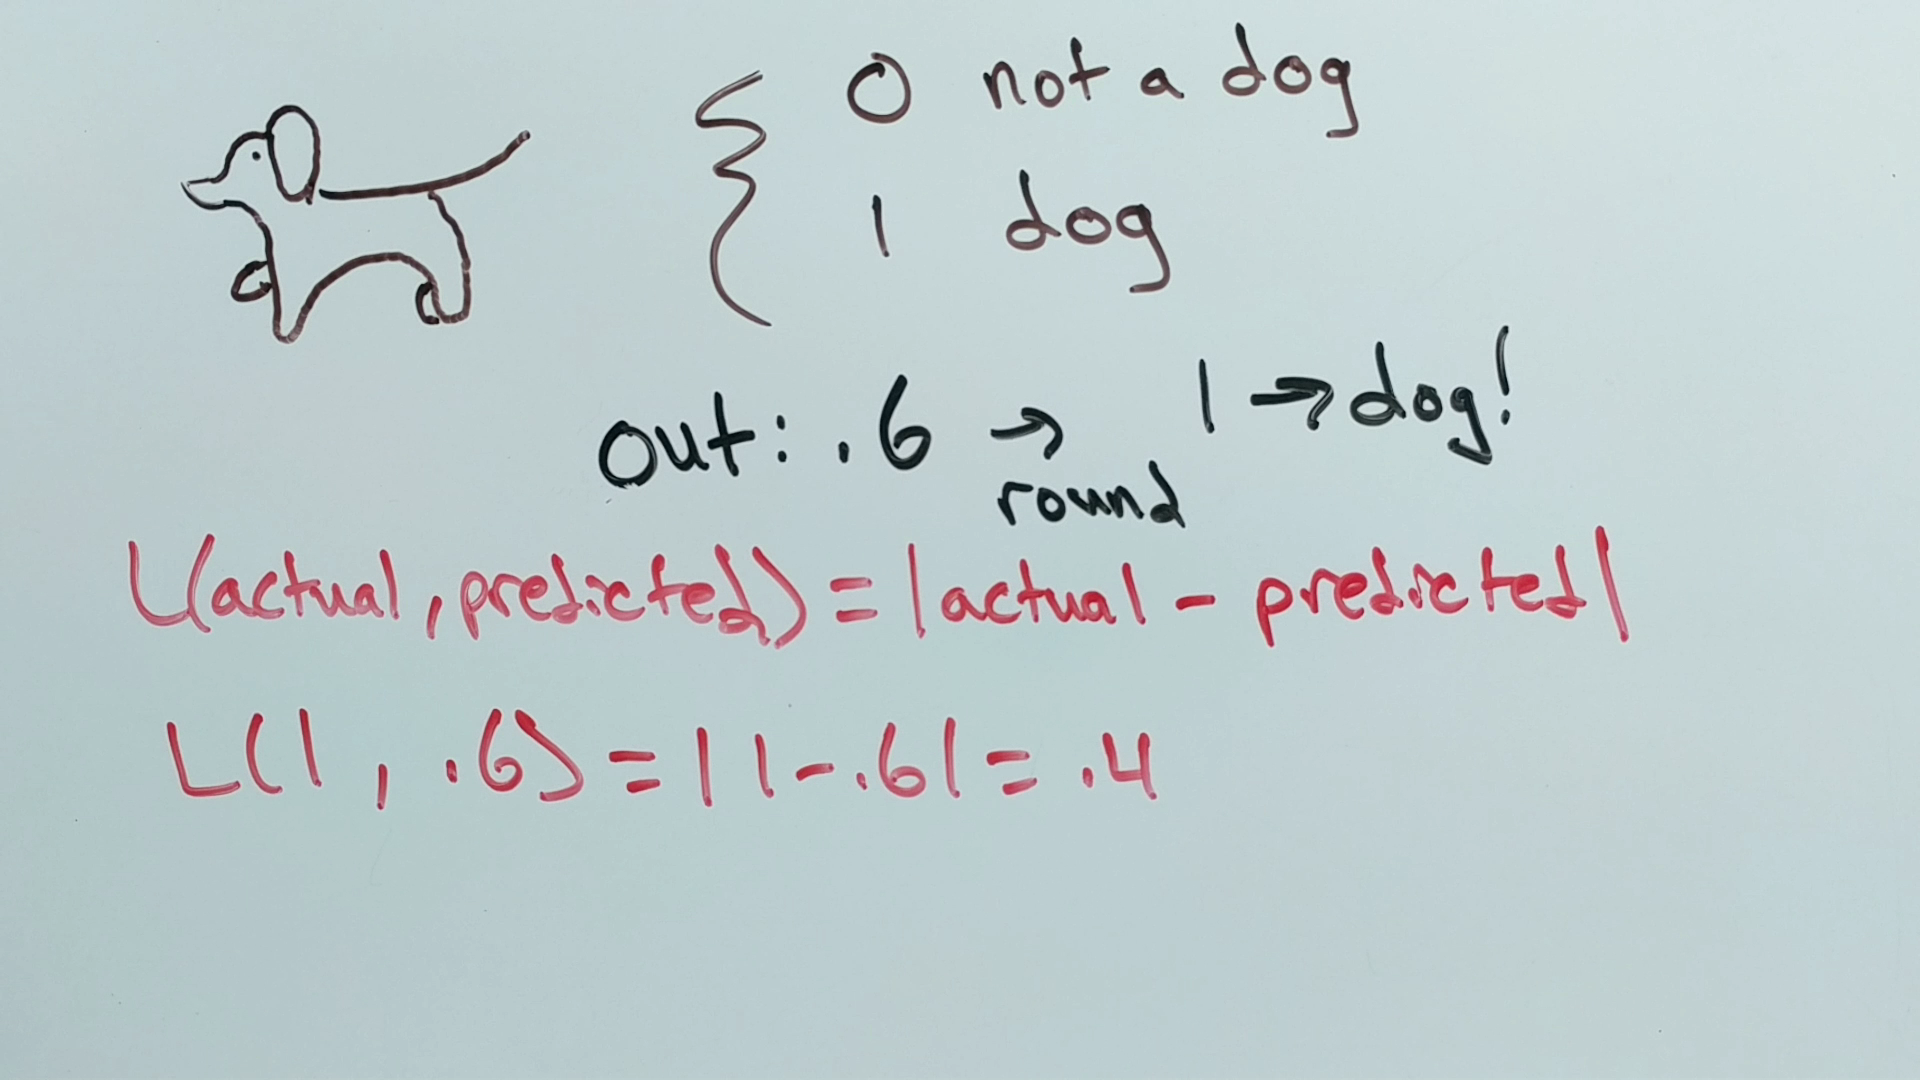 0 not a dog
1 dog
out: .6 → 1 → dog!
round
L(actual, predicted) = |actual - predicted|
L(1, .6) = |1 - .6| = .4